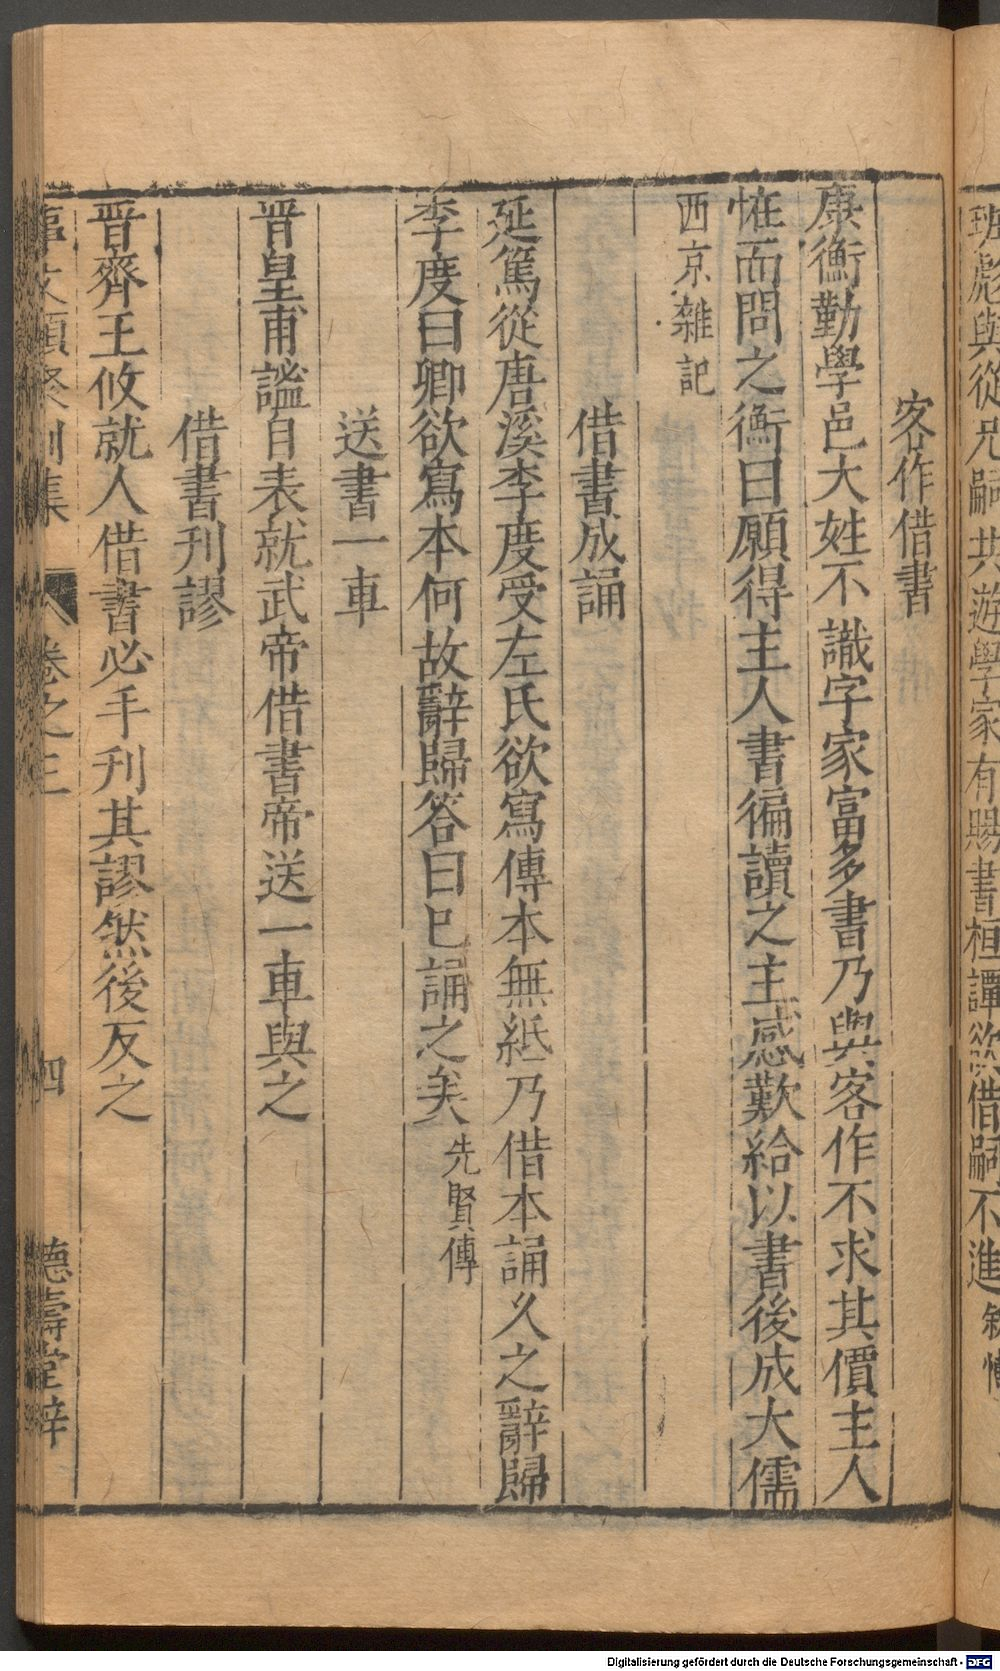 班彪與從兄嗣共遊學家有賜書桓譚欲借嗣不進
客作借書
康衡勤學邑大姓不識字家富多書乃與客作不求其價主人
恠而問之衡曰願得主人書徧讀之主感歎給以書後成大儒
西京雜記
借書成誦
延篤從唐溪李度受左氏欲寫傳本無紙乃借本誦久之辭歸
李度曰卿欲寫本何故辭歸答曰已誦之矣先賢傳
送書一車
晋皇甫謐自表就武帝借書帝送一車與之
借書刊謬
晋齊王攸就人借書必手刊其謬然後反之
事文類聚別集 卷之三 四 德壽堂梓
Digitalisierung gefördert durch die Deutsche Forschungsgemeinschaft - DFG